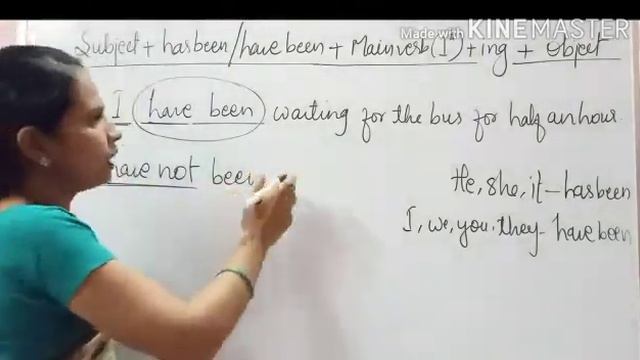 Made with KINEMASTER
Subject + has been/have been + Main verb (I) + ing + Object
I have been waiting for the bus for half an hour.
have not been
He, she, it - has been
I, we, you, they - have been